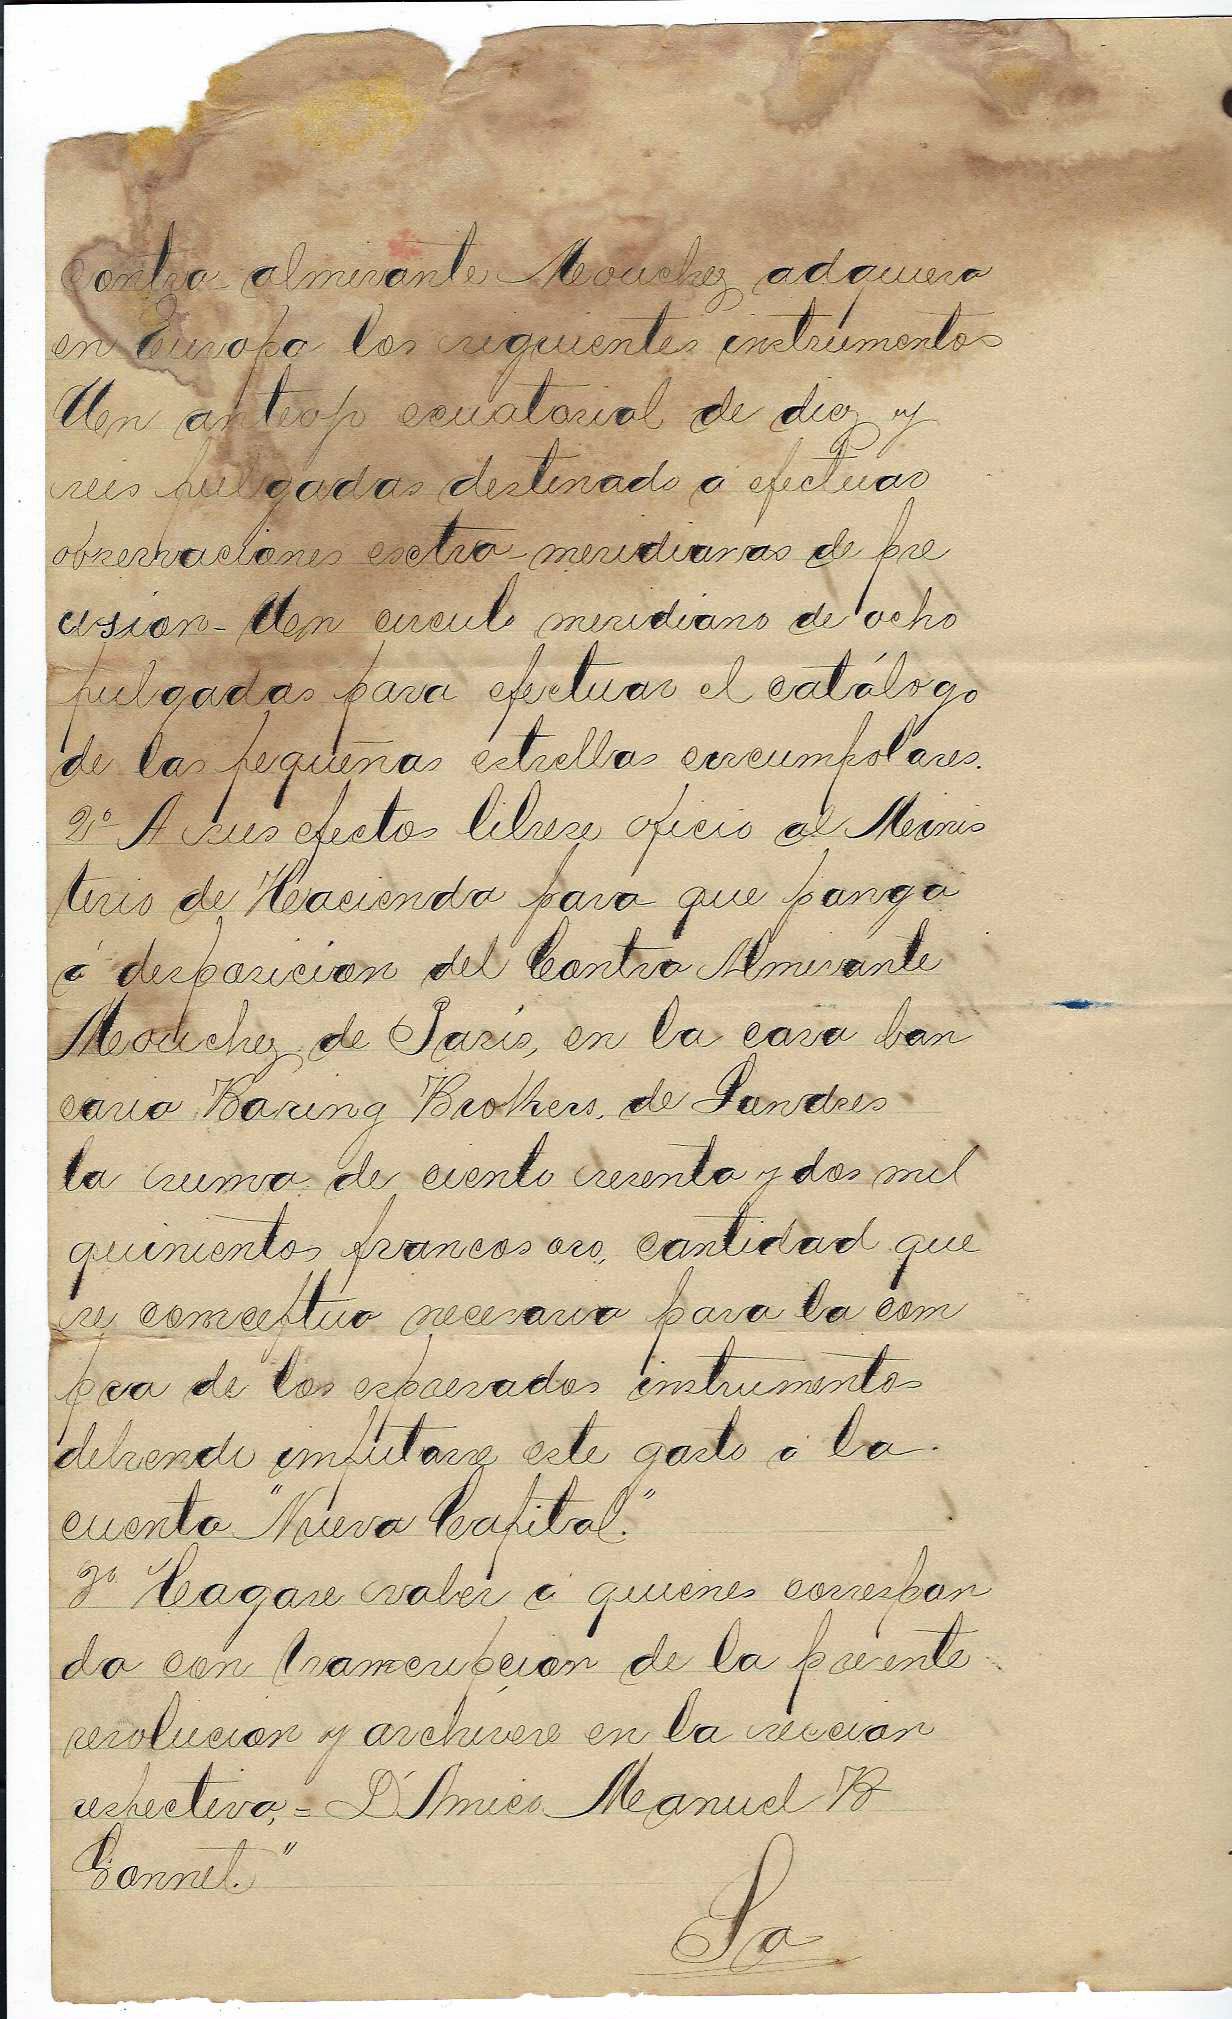 Contra-almirante Mouchez adquiera
en Europa los siguientes instrumentos
Un anteojo ecuatorial de diez y
seis pulgadas destinado a efectuar
observaciones esctra-meridianas de pre
cision - Un circulo meridiano de ocho
pulgadas para efectuar el catálogo
de las pequeñas estrellas circumpolares.
2º A sus efectos librese oficio al Minis
terio de Hacienda para que ponga
á disposicion del Contra Almirante
Mouchez de Paris, en la casa ban
caria Baring Brothers, de Londres
la suma de ciento sesenta y dos mil
quinientos francos oro, cantidad que
se conceptua necesaria para la com
pra de los espresados instrumentos
debiendo imputarse este gasto á la
cuenta "Nueva Capital."
3º Hagase saber á quienes correspon
da con transcripcion de la presente
resolucion y archivese en la seccion
respectiva, = D'Amico Manuel B
Gonnet."
La